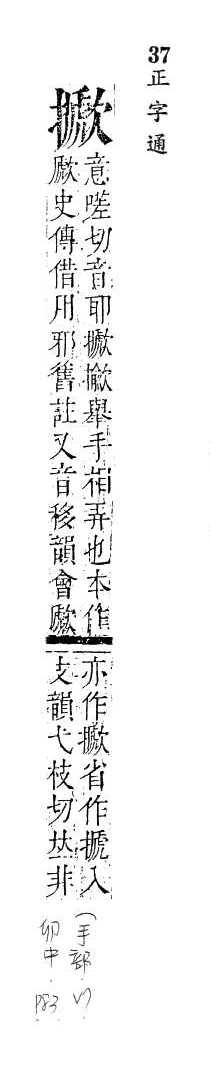 37
正字通
擨
意嗟切音耶擨舉手相弄也本作
歋史傳借用邪舊註又音移韻會歋
亦作擨省作搋入
支韻弋枝切𠀤非
(手部
卯中 P83